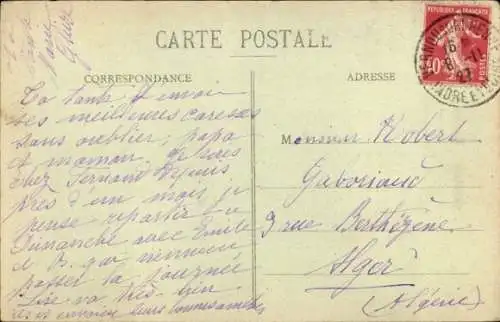 CARTE POSTALE
CORRESPONDANCE
ADRESSE
REPUBLIQUE FRANÇAISE
POSTES
Ta tante t'envoie
ses meilleures caresses
sans oublier, papa
et maman. Je suis
chez Fernand depuis
près d'un mois je
pense repartir
Dimanche avec Emile
et B. qui viennent
passer la journée
Lise va très bien
envoient leurs bonnes amitiés
Monsieur Robert
Gaboriaud
9 rue Berthézène
Alger
(Algérie)